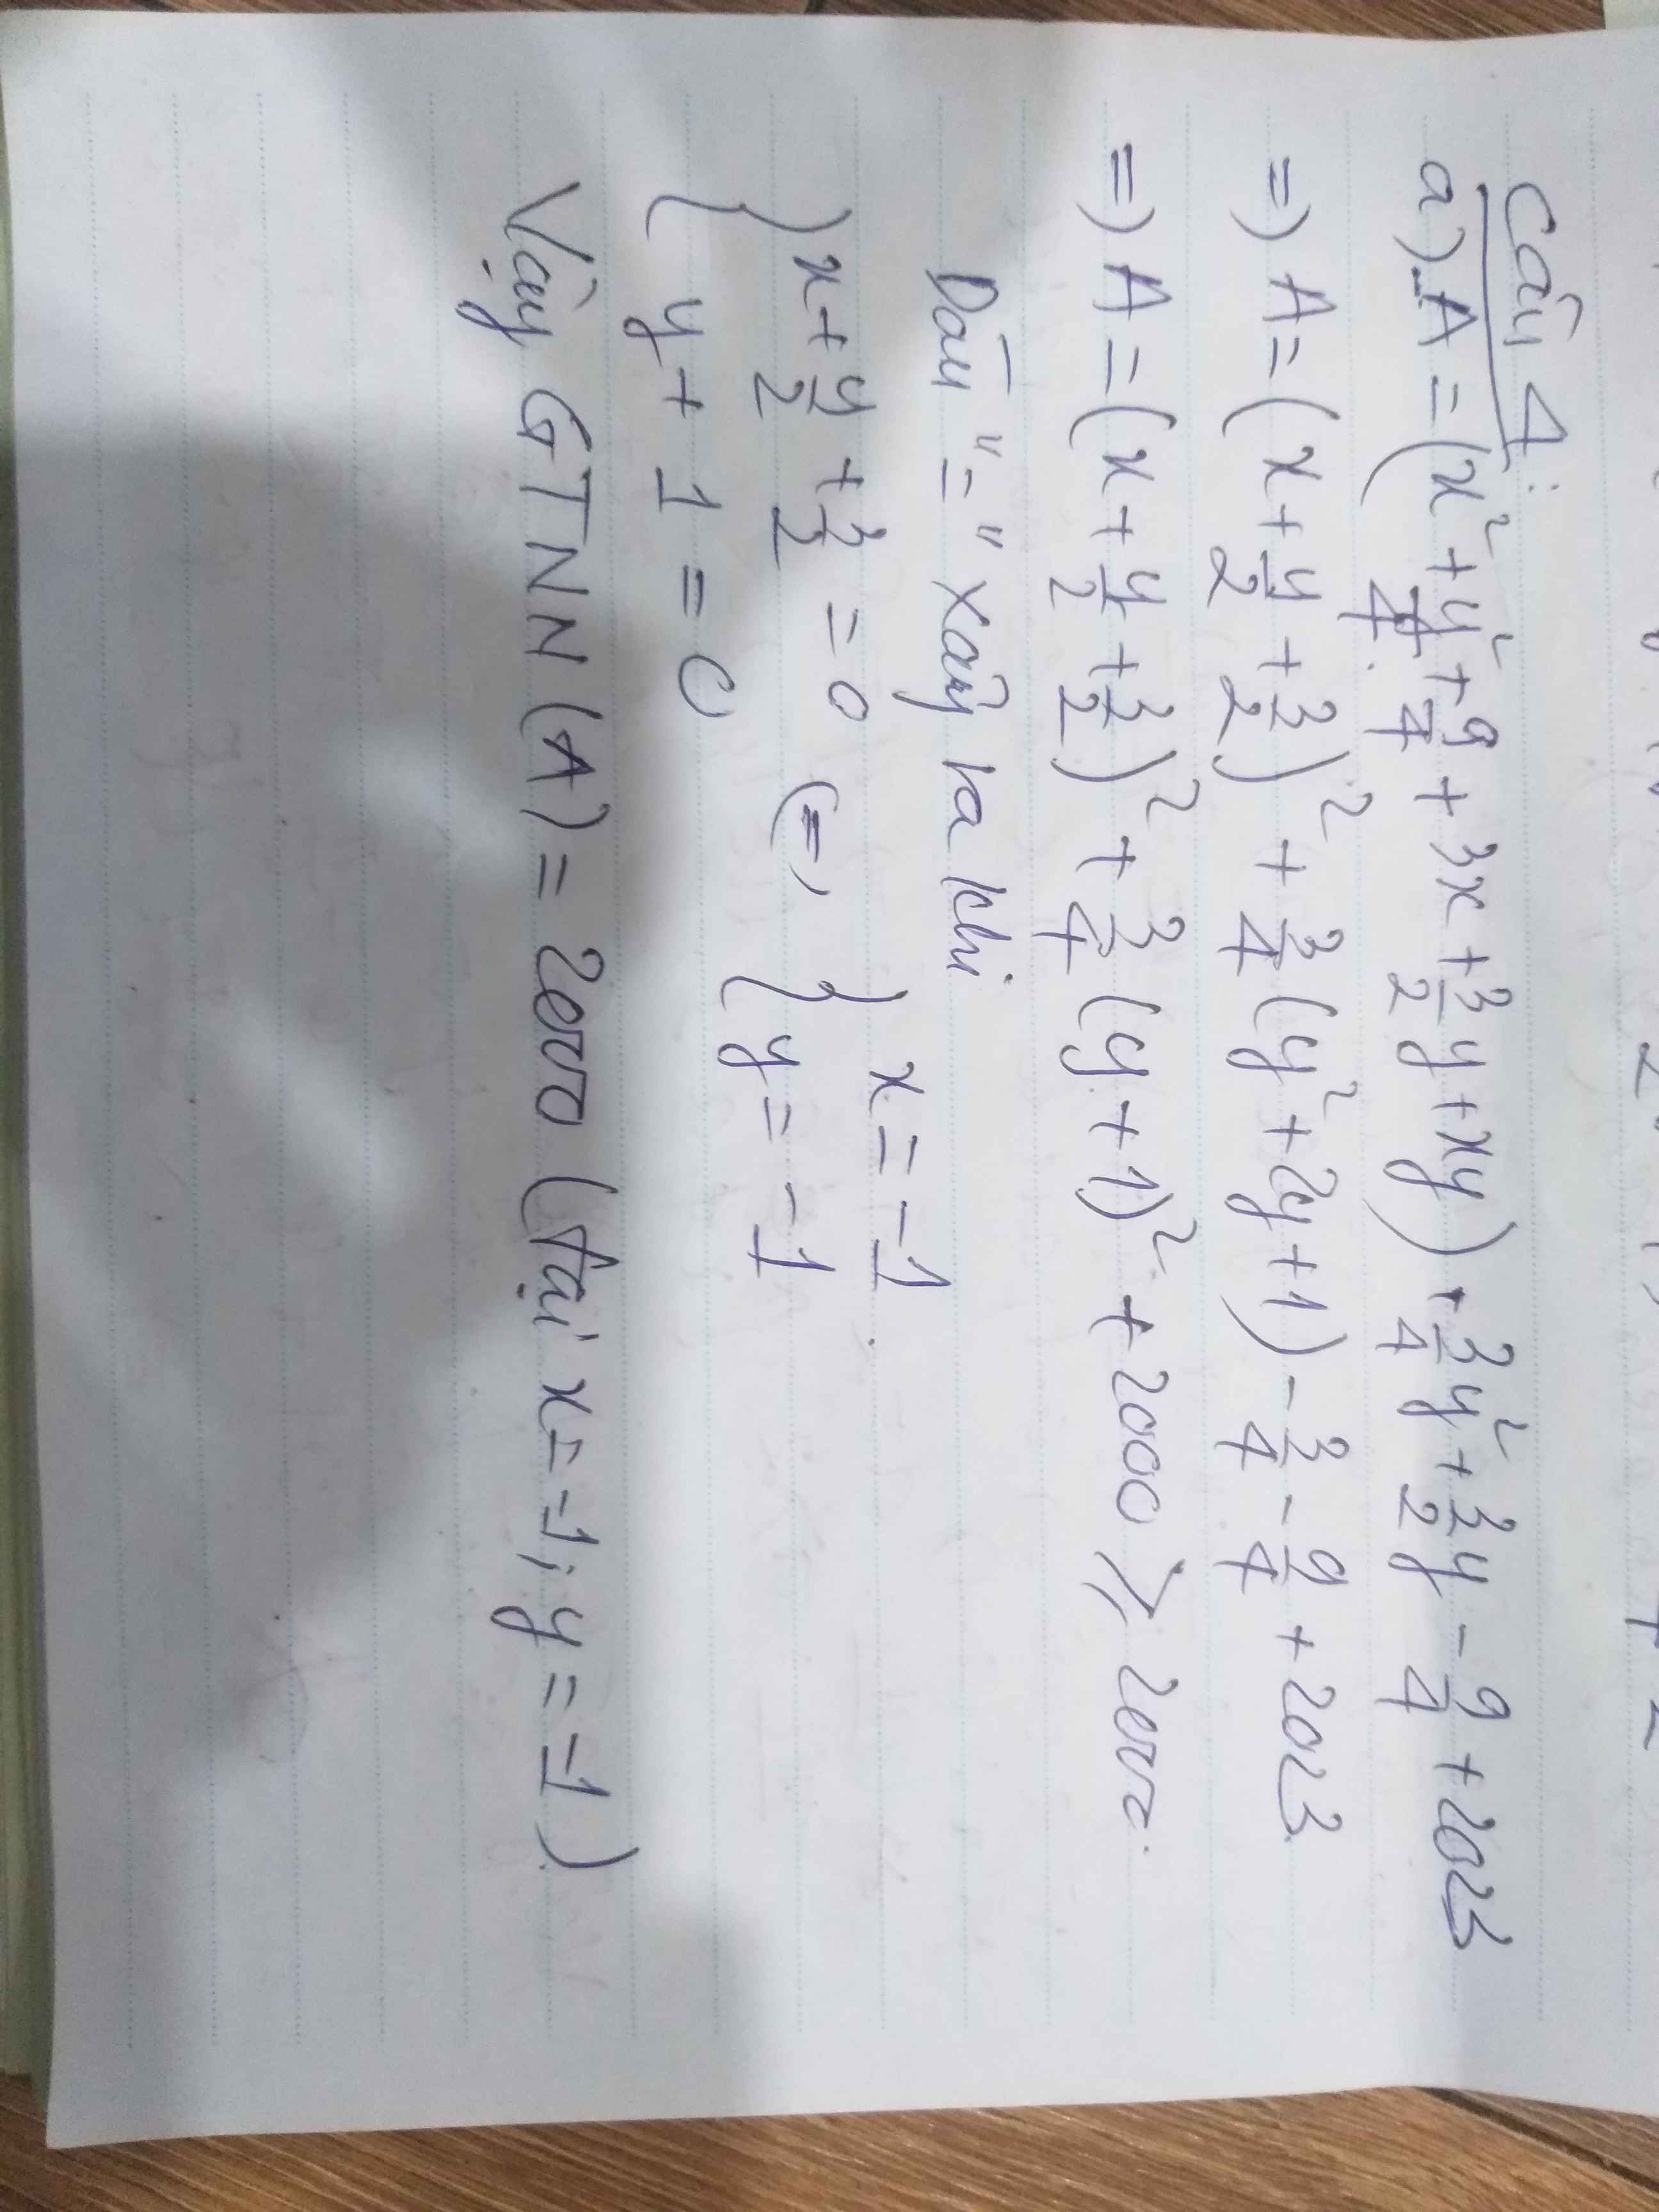 Câu 4:
a) A = (x² + y²/4 + 9/4 + 3x + 3/2 y + xy) + 3/4 y² + 3/2 y - 9/4 + 2023
=) A = (x + y/2 + 3/2)² + 3/4 (y² + 2y + 1) - 3/4 - 9/4 + 2023
=) A = (x + y/2 + 3/2)² + 3/4 (y + 1)² + 2000 ⩾ 2000.
Dấu "=" xảy ra khi
{ x + y/2 + 3/2 = 0 (=) { x = -1
{ y + 1 = 0 { y = -1
Vậy GTNN (A) = 2000 (tại x = -1; y = -1)